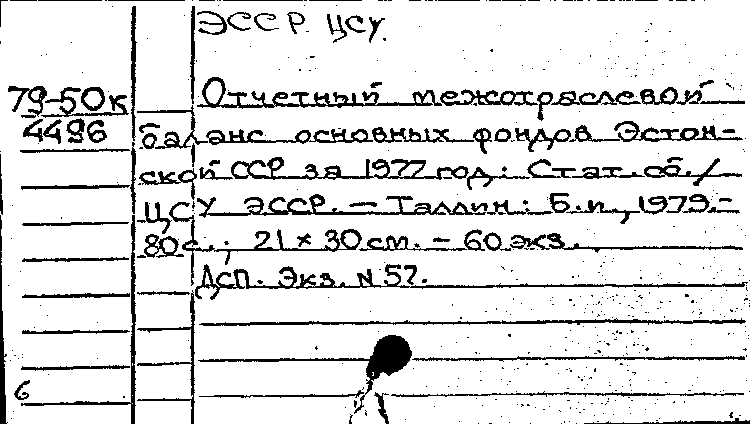 ЭССР ЦСУ.
79-50к
4496
Отчетный межотраслевой
баланс основных фондов Эстон-
ской ССР за 1977 год: Стат. сб. /
ЦСУ ЭССР. — Таллин: Б.и., 1979.-
80 с.; 21 × 30 см. - 60 экз.
ДСП. Экз. N 57.
6